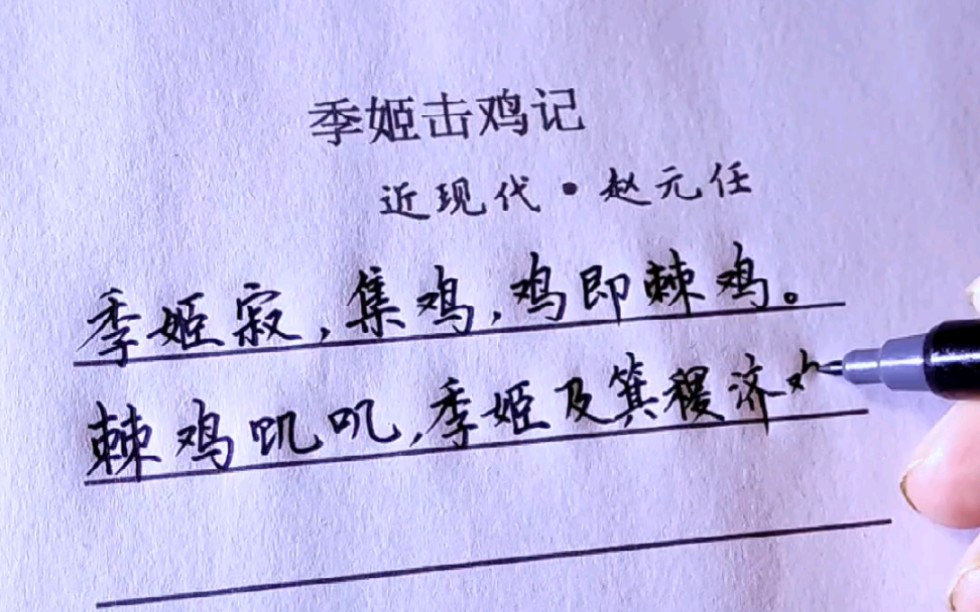 季姬击鸡记
近现代·赵元任
季姬寂,集鸡,鸡即棘鸡。
棘鸡叽叽,季姬及箕稷济